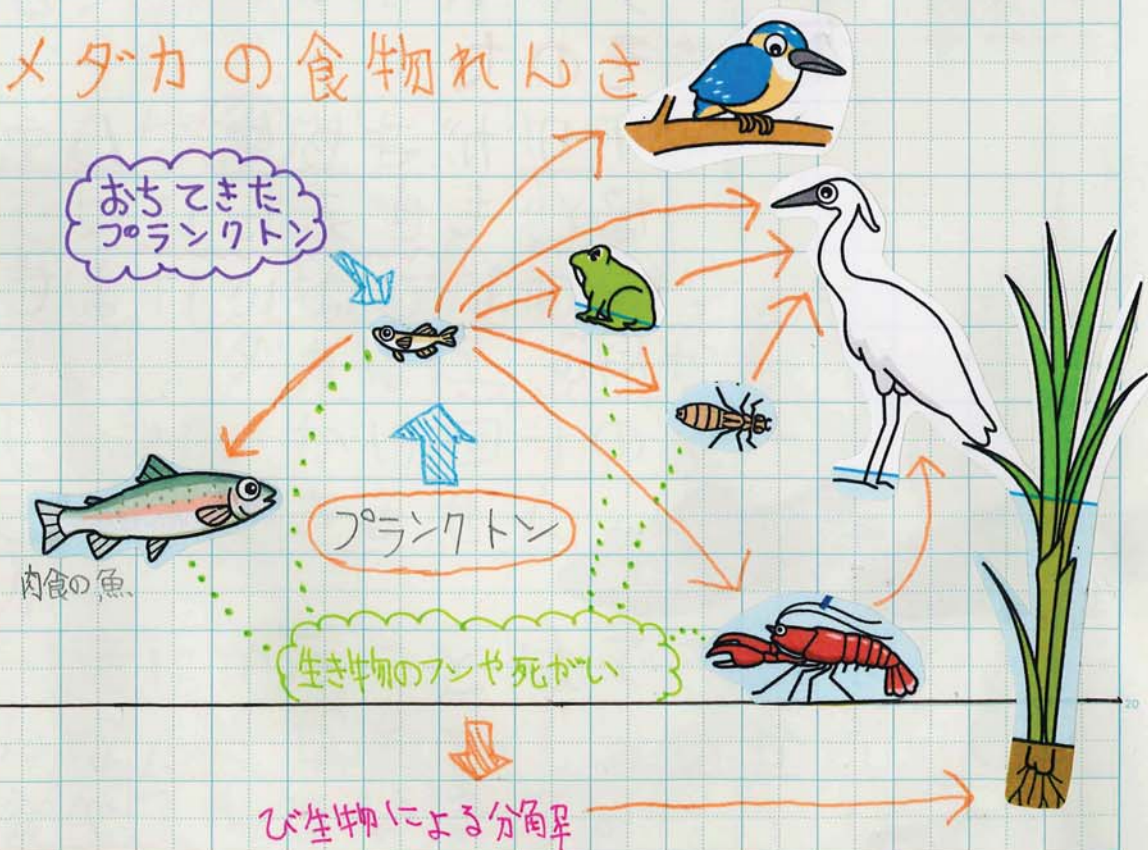 メダカの食物れんさ
おちてきた
プランクトン
プランクトン
肉食の魚
生き物のフンや死がい
び生物による分解
20